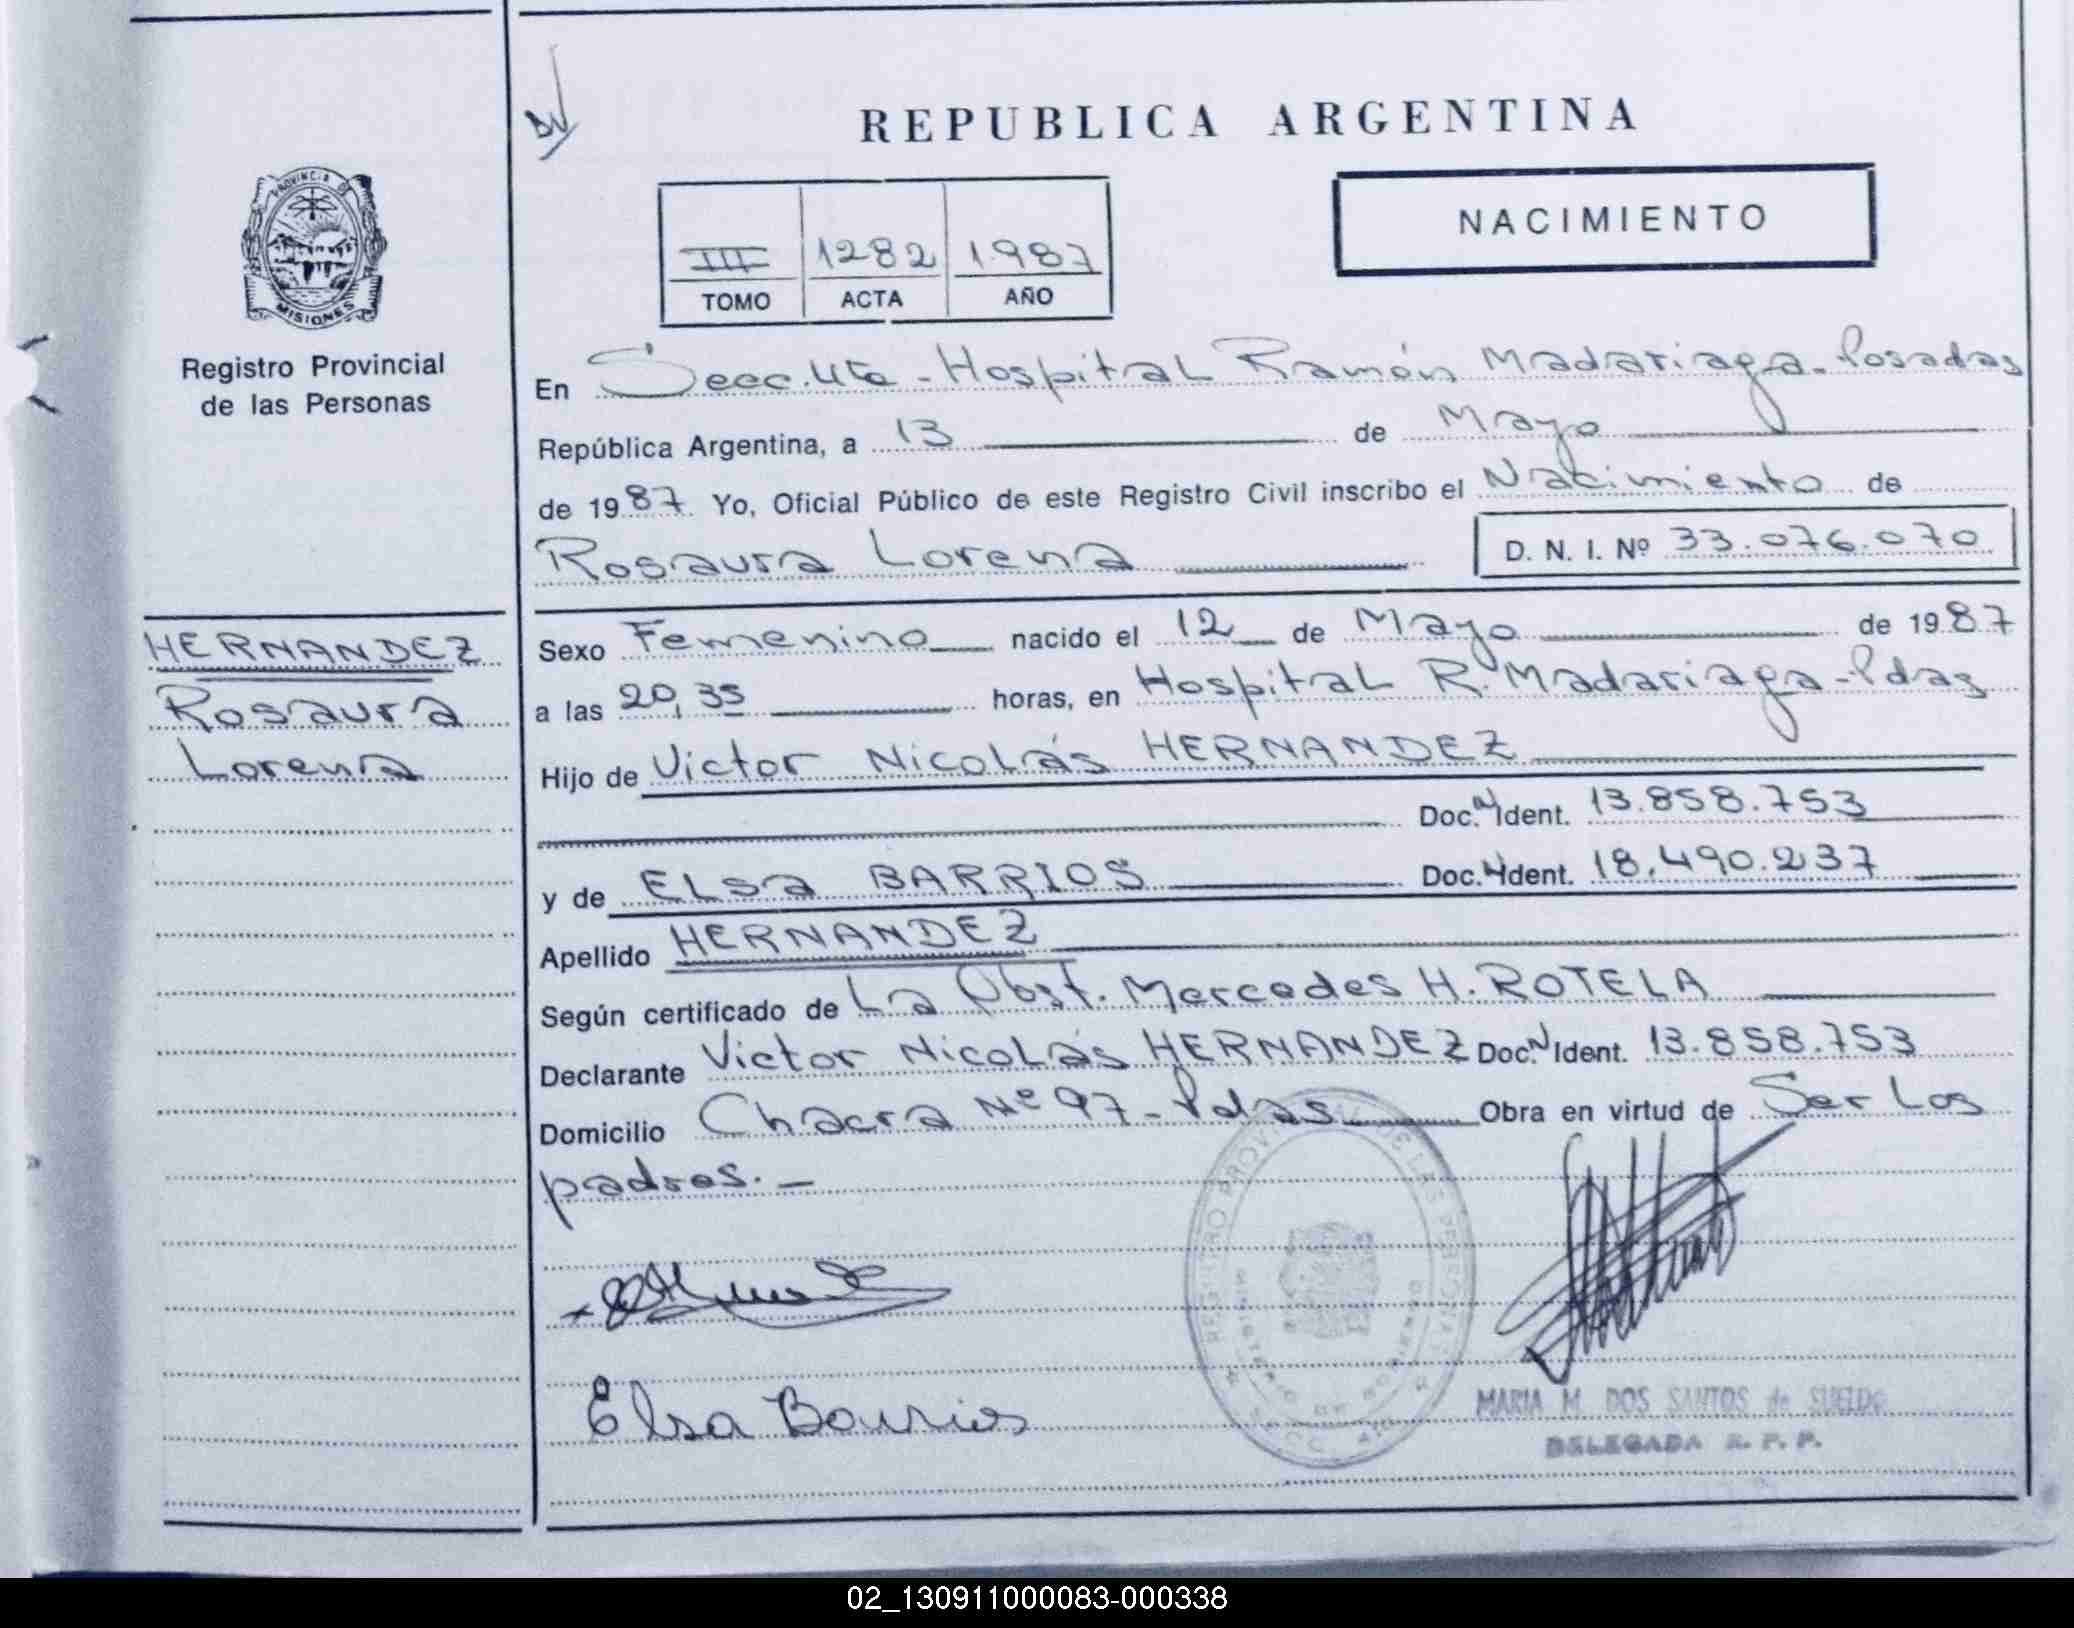 REPUBLICA ARGENTINA
NACIMIENTO
III 1282 1987
TOMO ACTA AÑO
PROVINCIA DE
MISIONES
Registro Provincial
de las Personas
En Secc. 4ta - Hospital Ramón Madariaga - Posadas
República Argentina, a 13 de Mayo
de 1987 Yo, Oficial Público de este Registro Civil inscribo el Nacimiento de
Rosaura Lorena D. N. I. Nº 33.076.070
HERNANDEZ
Rosaura
Lorena
Sexo Femenino nacido el 12 de Mayo de 1987
a las 20,35 horas, en Hospital R. Madariaga - Pdas
Hijo de Victor Nicolás HERNANDEZ
Doc. Ident. 13.858.753
y de ELsa BARRIOS Doc. Ident. 18.490.237
Apellido HERNANDEZ
Según certificado de La Obst. Mercedes H. ROTELA
Declarante Victor Nicolás HERNANDEZ Doc. Ident. 13.858.753
Domicilio Chacra Nº 97 - Pdas Obra en virtud de Ser Los
padres. -
Elsa Barrios
MARIA M. DOS SANTOS de SUELDO
DELEGADA R. P. P.
02_130911000083-000338